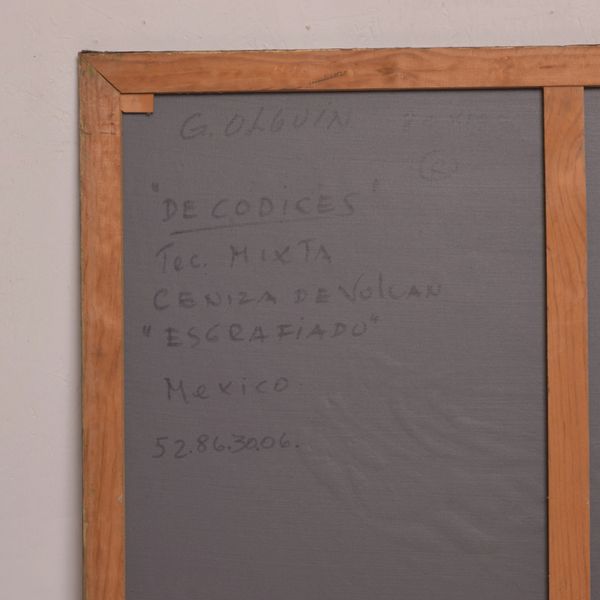 G. OLGUÍN
(R)
"DE CODICES"
Tec. MIXTA
CENIZA DE VOLCAN
"ESGRAFIADO"
Mexico.
52.86.30.06.